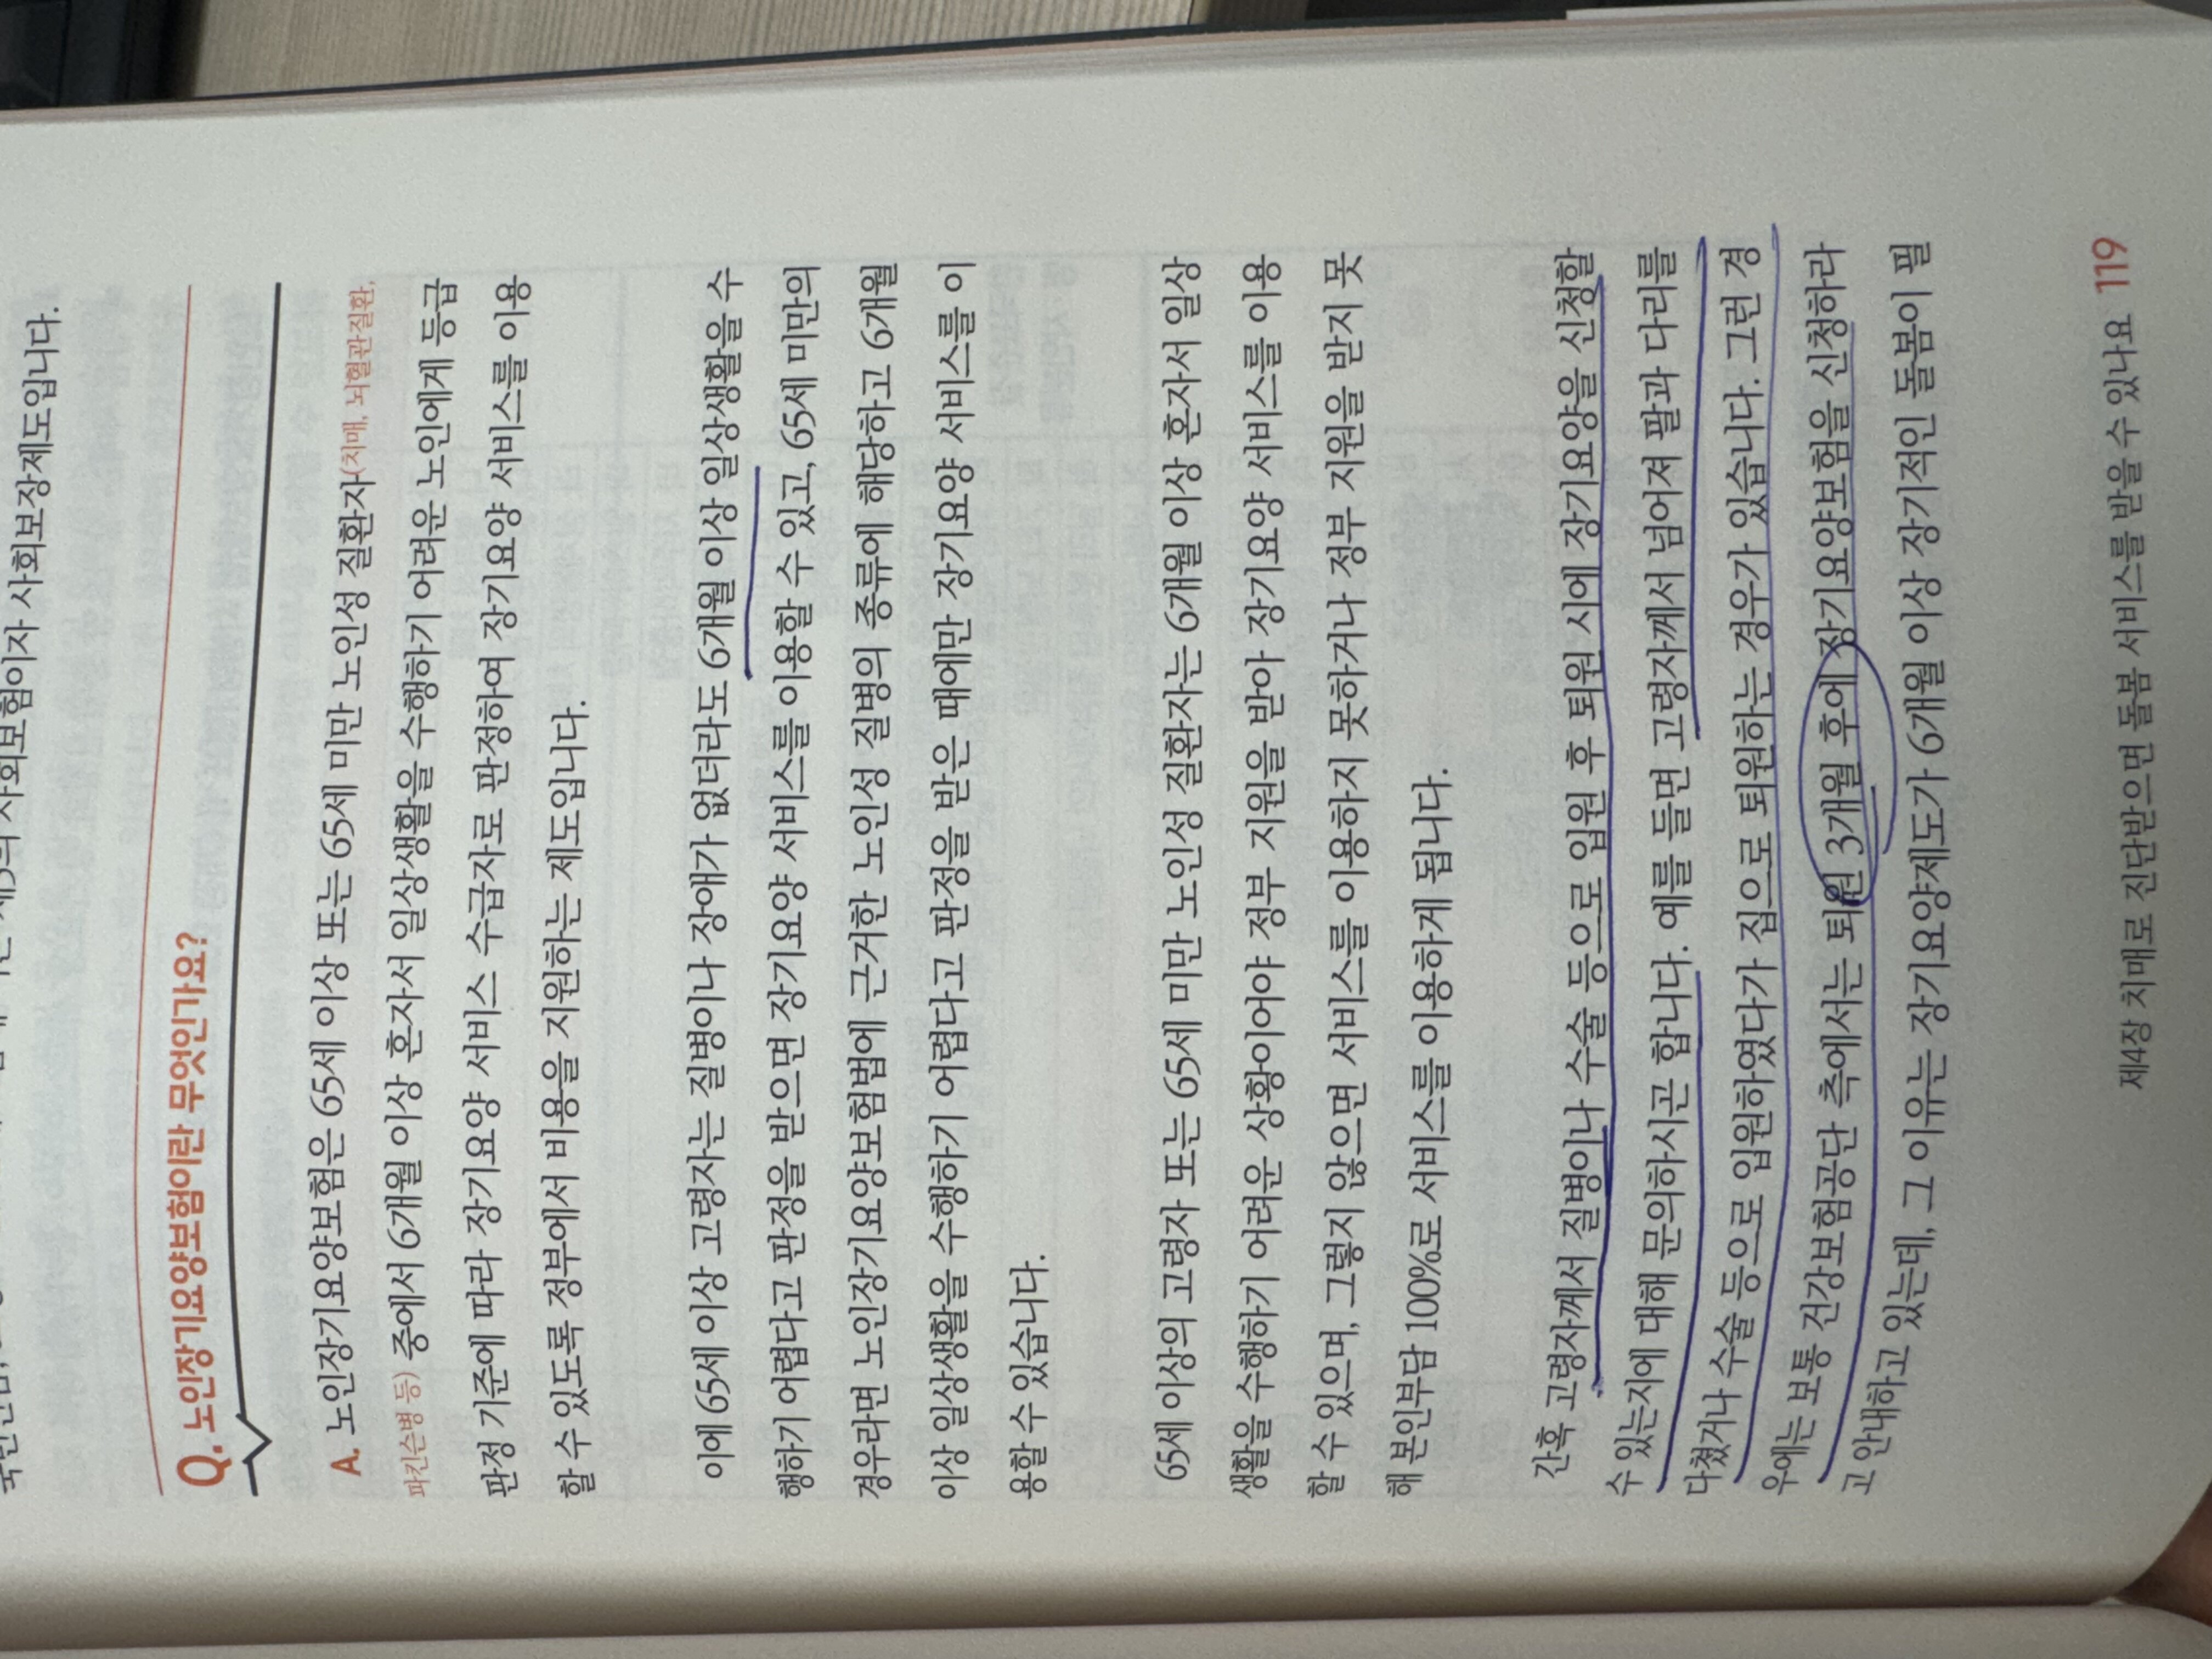 사회보험이자 사회보장제도입니다.
Q. 노인장기요양보험이란 무엇인가요?
A. 노인장기요양보험은 65세 이상 또는 65세 미만 노인성 질환자(치매, 뇌혈관질환,
파킨슨병 등) 중에서 6개월 이상 혼자서 일상생활을 수행하기 어려운 노인에게 등급
판정 기준에 따라 장기요양 서비스 수급자로 판정하여 장기요양 서비스를 이용
할 수 있도록 정부에서 비용을 지원하는 제도입니다.
이에 65세 이상 고령자는 질병이나 장애가 없더라도 6개월 이상 일상생활을 수
행하기 어렵다고 판정을 받으면 장기요양 서비스를 이용할 수 있고, 65세 미만의
경우라면 노인장기요양보험법에 근거한 노인성 질병의 종류에 해당하고 6개월
이상 일상생활을 수행하기 어렵다고 판정을 받은 때에만 장기요양 서비스를 이
용할 수 있습니다.
65세 이상의 고령자 또는 65세 미만 노인성 질환자는 6개월 이상 혼자서 일상
생활을 수행하기 어려운 상황이어야 정부 지원을 받아 장기요양 서비스를 이용
할 수 있으며, 그렇지 않으면 서비스를 이용하지 못하거나 정부 지원을 받지 못
해 본인부담 100%로 서비스를 이용하게 됩니다.
간혹 고령자께서 질병이나 수술 등으로 입원 후 퇴원 시에 장기요양을 신청할
수 있는지에 대해 문의하시곤 합니다. 예를 들면 고령자께서 넘어져 팔과 다리를
다쳤거나 수술 등으로 입원하였다가 집으로 퇴원하는 경우가 있습니다. 그런 경
우에는 보통 건강보험공단 측에서는 퇴원 3개월 후에 장기요양보험을 신청하라
고 안내하고 있는데, 그 이유는 장기요양제도가 6개월 이상 장기적인 돌봄이 필
제4장 치매로 진단받으면 돌봄 서비스를 받을 수 있나요 119